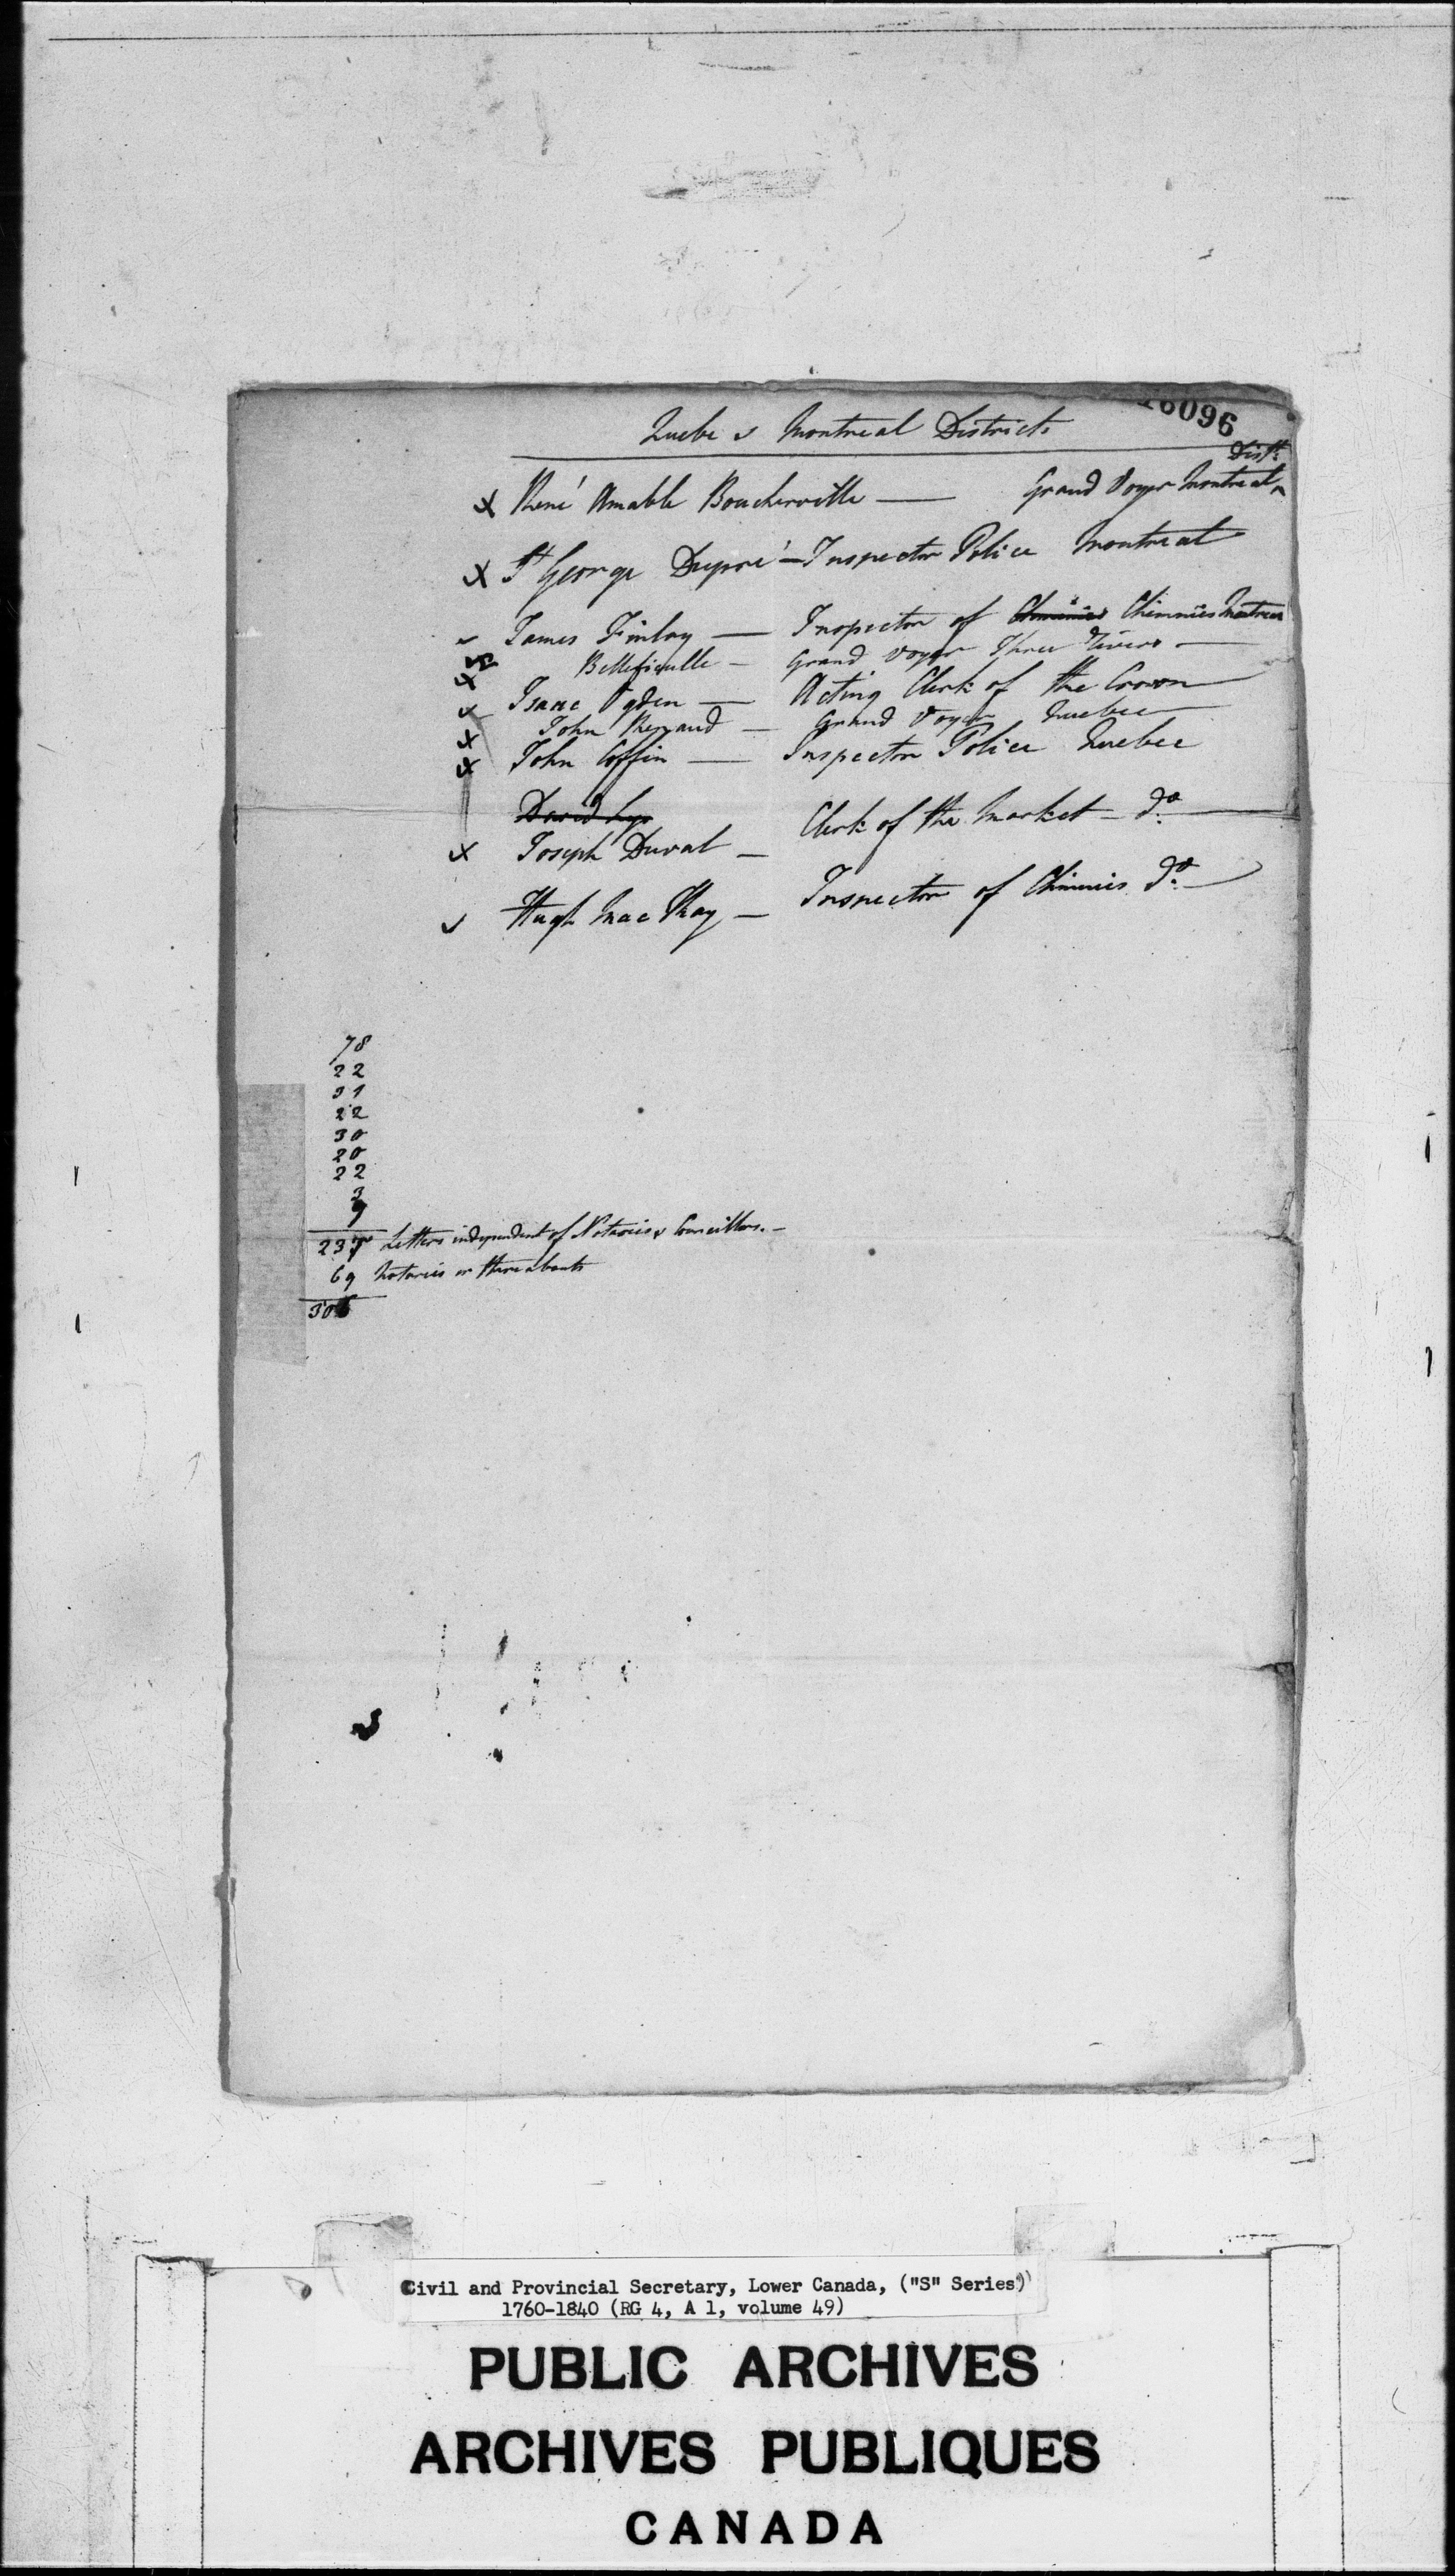 16096
Quebe & Montreal Districts
x René Amable Boucherville — Grand Voyer Montreal Distt.
x St George Dupré — Inspector Police Montreal
James Finlay — Inspector of Chimnies Chimnies Montreal
x Bellefeuille — Grand Voyer Three Rivers —
Isaac Ogden — Acting Clerk of the Crown
x John Renaud — Grand Voyer Quebec
x John Coffin — Inspector Police Quebec
David
x Joseph Duval — Clerk of the Market — Do.
Hugh Mac Kay — Inspector of Chimnis Do.
78
22
31
22
30
20
22
3
9
237 Letters independent of Notaries & Councillors. —
69 Notaries or thereabouts
306
Civil and Provincial Secretary, Lower Canada, ("S" Series)
1760-1840 (RG 4, A 1, volume 49)
PUBLIC ARCHIVES
ARCHIVES PUBLIQUES
CANADA